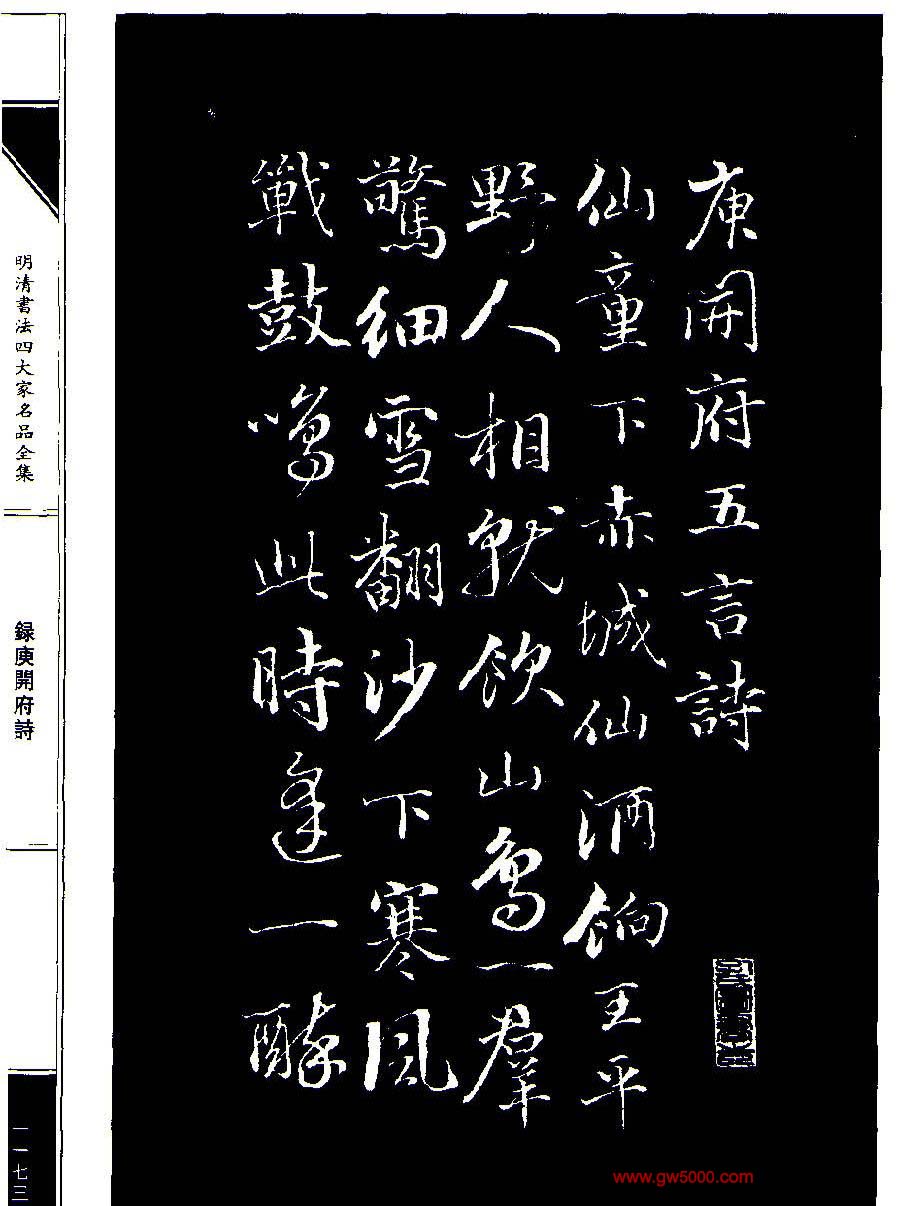 庾開府五言詩
仙童下赤城仙酒餉王平
野人相就飲山鳥一羣
驚細雪翻沙下寒風
戰鼓鳴此時逢一醉
明清書法四大家名品全集
録庾開府詩
一一七三
www.gw5000.com